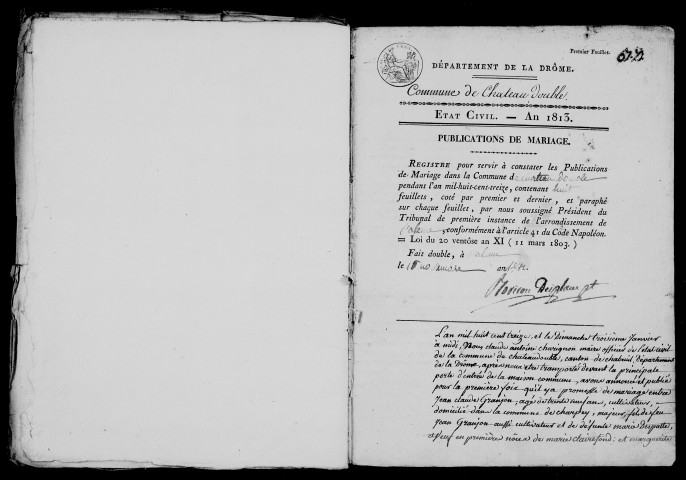 Premier Feuillet.
DÉPARTEMENT DE LA DRÔME.
Commune de Chateaudouble.
ETAT CIVIL. — AN 1813.
PUBLICATIONS DE MARIAGE.
REGISTRE pour servir à constater les Publications
de Mariage dans la Commune de
pendant l'an mil-huit-cent-treize, contenant huit
feuillets, coté par premier et dernier, et paraphé
sur chaque feuillet, par nous soussigné Président du
Tribunal de première instance de l'arrondissement de
Valence, conformément à l'article 41 du Code Napoléon.
= Loi du 20 ventôse an XI (11 mars 1803.)
Fait double, à Valence
le
L'an mil huit cent treize, et le dimanche troisieme Janvier
à midi, Nous claude antoine maire officier de l'état civil
de la commune de chateaudouble, canton de chabeuil, Département
de la Drôme, après nous être transporté devant la principale
porte d'entrée de la maison commune, avons annoncé et publié
pour la première fois qu'il y a promesse de mariage entre
Jean claude Granjon, agé de trente ans, cultivateur,
domicilié dans la commune de charpey, majeur, fils de feu
Jean Granjon aussi cultivateur et de défunte marie
veuf en première nôces de marie clairefond; et marguerite